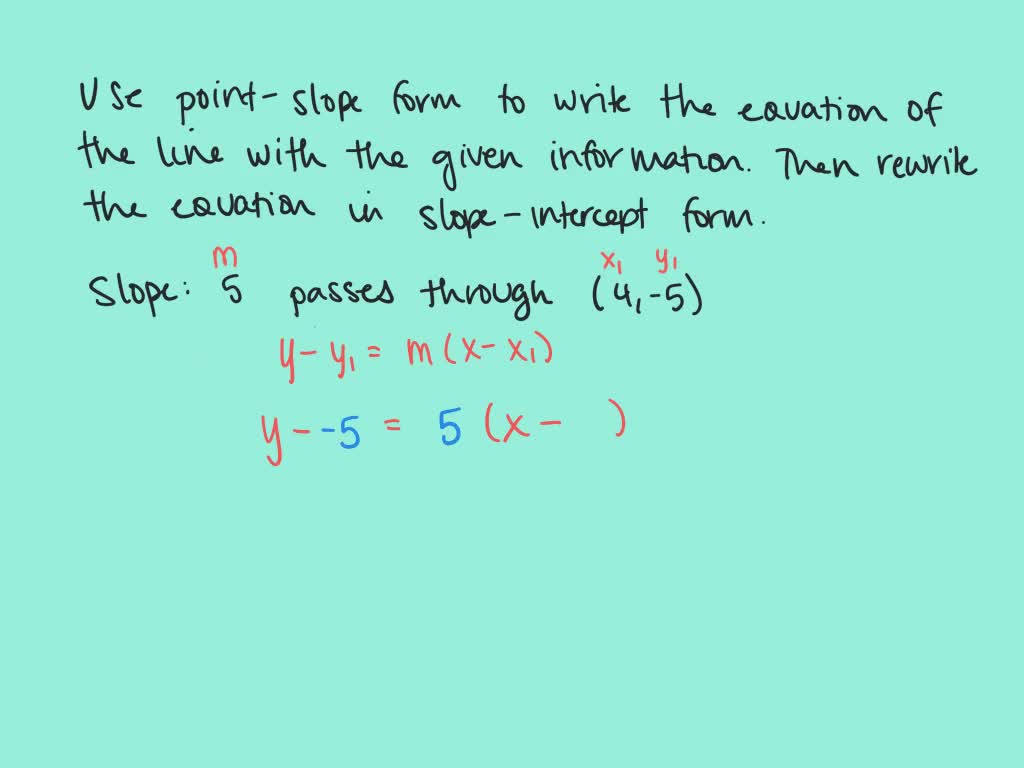 Use point-slope form to write the equation of
the line with the given information. Then rewrite
the equation in slope-intercept form.
m x₁ y₁
Slope: 5 passes through (4,-5)
y - y₁ = m(x - x₁)
y - -5 = 5 (x - )